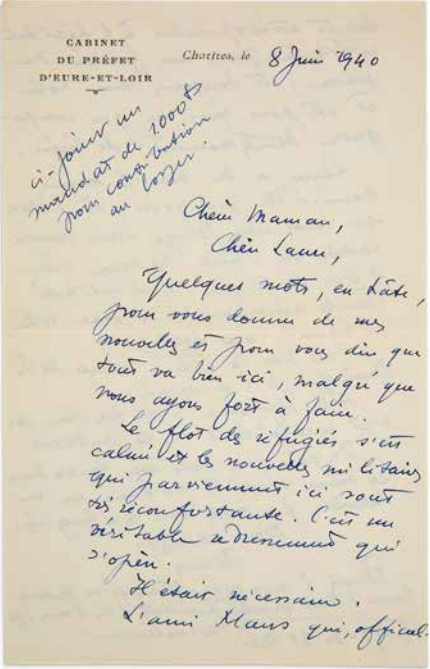 CABINET
DU PRÉFET
D'EURE-ET-LOIR
Chartres, le 8 Juin 1940
ci-joint un
mandat de 1.000 f
pour contribution
au loyer.
Chère Maman,
Chère Laure,
Quelques mots, en hâte,
pour vous donner de mes
nouvelles et pour vous dire que
tout va bien ici, malgré que
nous ayons fort à faire.
Le flot des réfugiés s'est
calmé et les nouvelles militaires
qui parviennent ici sont
très réconfortantes. C'est un
véritable redressement qui
s'opère.
Il était nécessaire.
L'ami Mans qui, official-